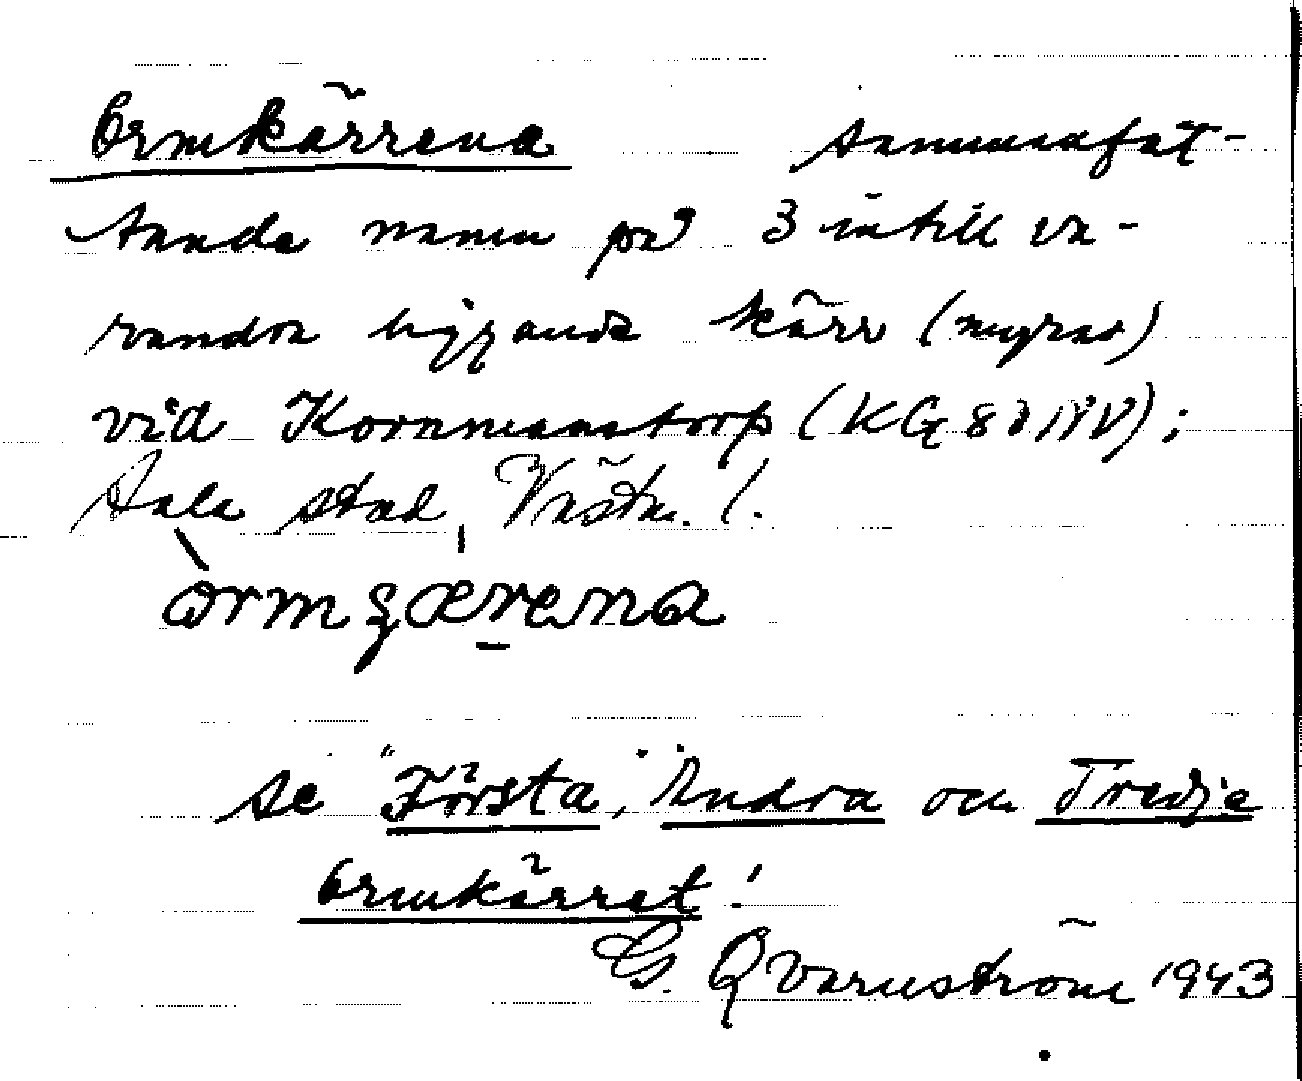 Ormkärrena sammanfat-
tande namn på 3 intill va-
randra liggande kärr (myrar)
vid Kornmanstorp (KG 8 d NV);
Sala stad, Västm. l.
òrmɟærena
se "Första, Andra och Tredje
Ormkärret!
G. Qvarnström 1943